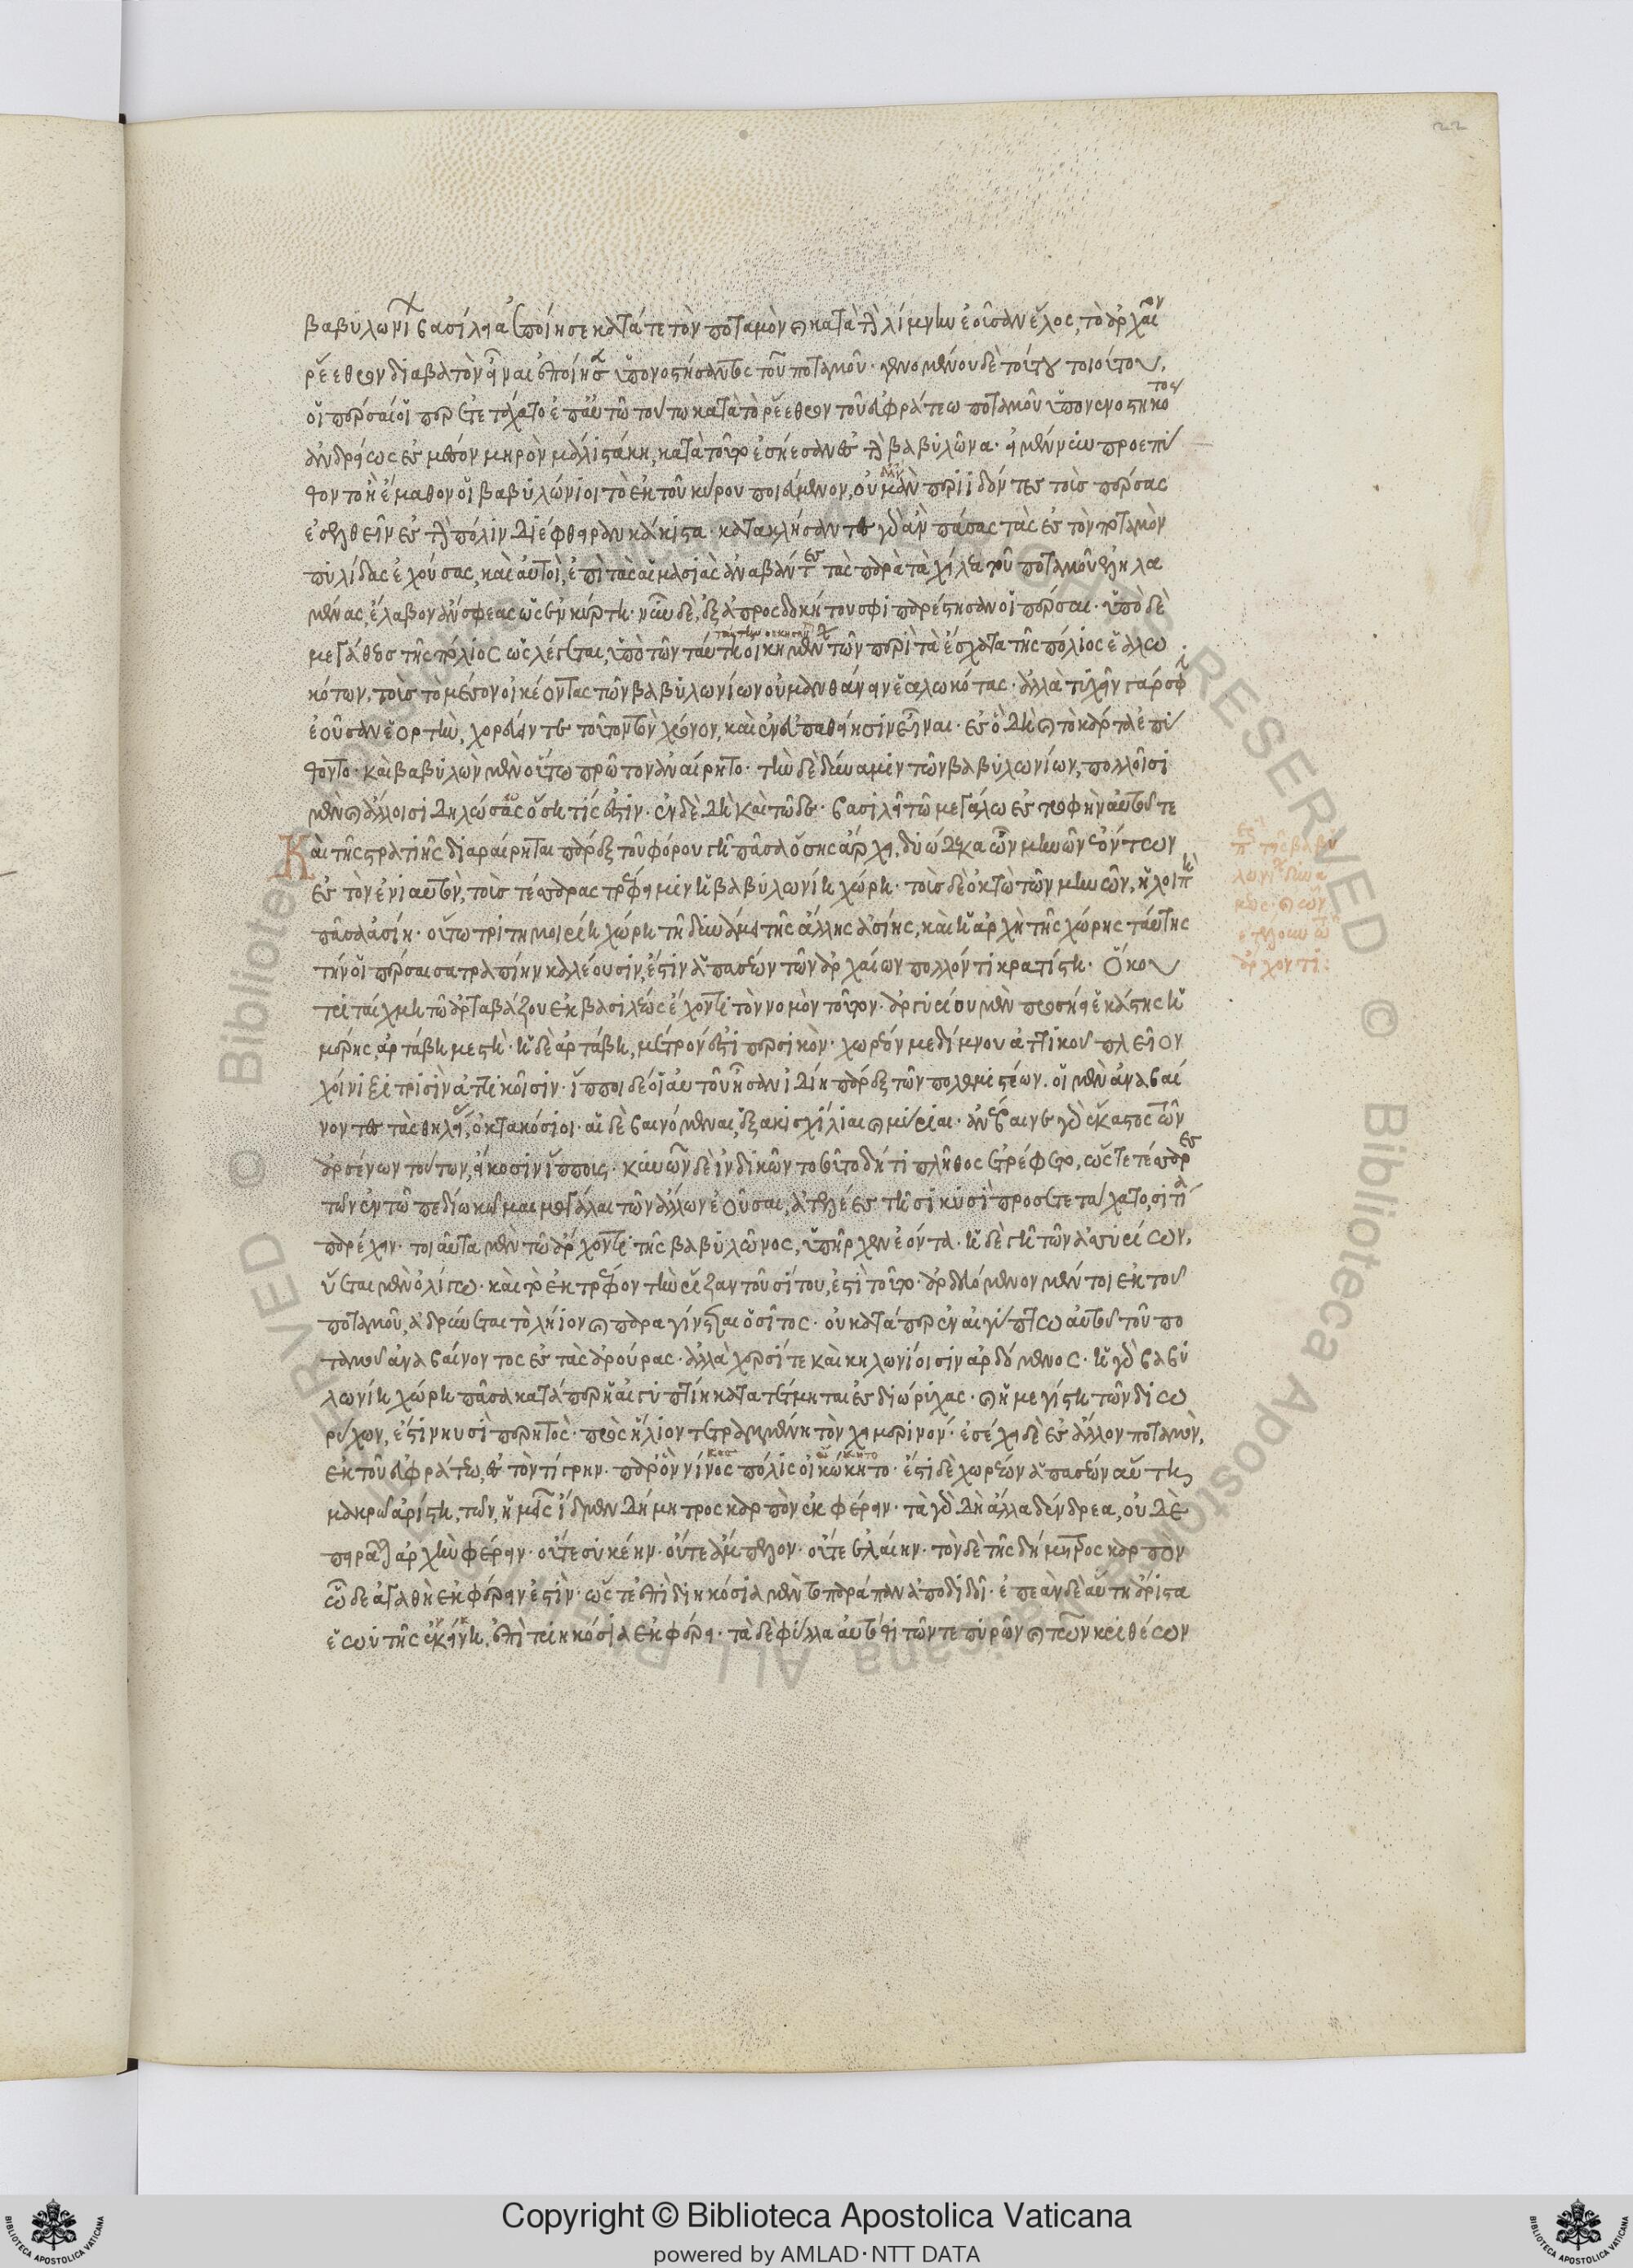 22
βαβυλωνίων βασίλεια ἐποίησε κατά τε τὸν ποταμὸν καὶ κατὰ τὴν λίμνην ἐοῦσαν ἕλος, τὸ ἀρχαῖον
ῥέεθρον διαβατὸν εἶναι ἐποίησε ὑπονοστήσαντος τοῦ ποταμοῦ· γενομένου δὲ τούτου τοιούτου,
οἱ πέρσαι οἵπερ ἐτετάχατο ἐπ' αὐτῷ τούτῳ κατὰ τὸ ῥέεθρον τοῦ εὐφρήτεω ποταμοῦ ὑπονενοστηκότος
ἀνδρὶ ὡς ἐς μέσον μηρὸν μάλιστά κη, κατὰ τοῦτο ἐσήεσαν ἐς τὴν βαβυλῶνα· εἰ μέν νυν προεπύ
θοντο ἢ ἔμαθον οἱ βαβυλώνιοι τὸ ἐκ τοῦ κύρου ποιεύμενον, οὐ μὰν περιιδόντες τοὺς πέρσας
ἐσελθεῖν ἐς τὴν πόλιν διέφθειραν κάκιστα· κατακληίσαντες γὰρ ἂν πάσας τὰς ἐς τὸν ποταμὸν
πυλίδας ἐχούσας, καὶ αὐτοὶ ἐπὶ τὰς αἱμασιὰς ἀναβάντες τὰς παρὰ τὰ χείλεα τοῦ ποταμοῦ ἐληλα
μένας, ἔλαβον ἂν σφέας ὡς ἐν κύρτῃ· νῦν δὲ ἐξ ἀπροσδοκήτου σφι παρέστησαν οἱ πέρσαι· ὑπὸ δὲ
μεγάθεος τῆς πόλιος ὡς λέγεται, ὑπὸ τῶν ταύτῃ οἰκημένων τῶν περὶ τὰ ἔσχατα τῆς πόλιος ἑαλω
κότων, τοὺς τὸ μέσον οἰκέοντας τῶν βαβυλωνίων οὐ μανθάνειν ἑαλωκότας· ἀλλὰ τυχεῖν γάρ σφι
ἐοῦσαν ἑορτήν, χορεύειν τε τοῦτον τὸν χρόνον, καὶ ἐν εὐπαθείῃσιν εἶναι· ἐς ὃ δὴ καὶ τὸ κάρτα ἐπύ
θοντο· καὶ βαβυλὼν μὲν οὕτω πρῶτον ἀναίρητο· τὴν δὲ δύναμιν τῶν βαβυλωνίων, πολλοῖσι
μὲν καὶ ἄλλοισι δηλώσω ὅση τίς ἐστιν· ἐν δὲ δὴ καὶ τῷδε· βασιλεῖ τῷ μεγάλῳ ἐς τροφὴν αὐτοῦ τε
Καὶ τῆς στρατιῆς διαραίρηται πάρεξ τοῦ φόρου γῆ πᾶσα ὅσης ἄρχει, δυώδεκα ὦν μηνῶν ἐόντων
ἐς τὸν ἐνιαυτόν, τοὺς τέσσερας τρέφει μιν ἡ βαβυλωνίη χώρη· τοὺς δὲ ὀκτὼ τῶν μηνῶν, ἡ λοιπὴ
πᾶσα ἀσίη· οὕτω τριτημορίη χώρη τῇ δυνάμει τῆς ἄλλης ἀσίης, καὶ ἡ ἀρχὴ τῆς χώρης ταύτης
τὴν οἱ πέρσαι σατραπηίην καλέουσιν, ἔστιν ἁπασέων τῶν ἀρχέων πολλόν τι κρατίστη· Ὅκου
τριταίχμῃ τῷ ἀρταβάζου ἐκ βασιλέως ἔχοντι τὸν νομὸν τοῦτον· ἀργυρίου μὲν προσήιε ἑκάστης ἡ
μέρης, ἀρτάβη μεστή· ἡ δὲ ἀρτάβη, μέτρον ἐστὶ περσικόν· χωρέον μεδίμνου ἀττικοῦ πλεῖον
χοίνιξι τρισὶν ἀττικοῖσιν· ἵπποι δὲ οἱ αὐτοῦ ἦσαν ἰδίῃ πάρεξ τῶν πολεμιστέων. οἱ μὲν ἀναβαί
νοντες τὰς θηλέας, ὀκτακόσιοι· αἱ δὲ βαινόμεναι, ἑξακισχίλιαι καὶ μύριαι· ἀνέβαινε γὰρ ἕκαστος τῶν
ἐρσένων τούτων, εἴκοσιν ἵππους· κυνῶν δὲ ἰνδικῶν τοσοῦτο δή τι πλῆθος ἐτρέφετο, ὥστε τέσσερες
τῶν ἐν τῷ πεδίῳ κῶμαι μεγάλαι τῶν ἄλλων ἐοῦσαι, ἀτελέες τῇσι κυσὶ προσετετάχατο, σιτία
παρέχειν· τοιαῦτα μὲν τῷ ἄρχοντι τῆς βαβυλῶνος, ὑπῆρχεν ἐόντα· ἡ δὲ γῆ τῶν ἀσσυρίων,
ὕεται μὲν ὀλίγῳ· καὶ τὸ ἐκτρέφον τὴν ῥίζαν τοῦ σίτου, ἐστὶ τοῦτο· ἀρδευόμενον μέντοι ἐκ τοῦ
ποταμοῦ, ἁδρύνεται τὸ λήιον καὶ παραγίνεται ὁ σῖτος· οὐ κατάπερ ἐν αἰγύπτῳ αὐτοῦ τοῦ πο
ταμοῦ ἀναβαίνοντος ἐς τὰς ἀρούρας· ἀλλὰ χερσί τε καὶ κηλωνίοισιν ἀρδόμενος· ἡ γὰρ βαβυ
λωνίη χώρη πᾶσα κατάπερ ἡ αἰγυπτίη κατατέτμηται ἐς διώρυχας· καὶ ἡ μεγίστη τῶν διω
ρύχων, ἔστι νηυσὶ περητός· πρὸς ἥλιον τετραμμένη τὸν χειμερινόν· ἐσέχει δὲ ἐς ἄλλον ποταμὸν,
ἐκ τοῦ εὐφρήτεω, ἐς τὸν τίγρην· παρ' ὃν νίνος πόλις οἴκητο· ἔστι δὲ χωρέων ἁπασέων αὕτη
μακρῷ ἀρίστη, τῶν, ἡμεῖς ἴδμεν δήμητρος καρπὸν ἐκφέρειν· τὰ γὰρ δὴ ἄλλα δένδρεα, οὐδὲ
πειρᾶται ἀρχὴν φέρειν· οὔτε συκέην· οὔτε ἄμπελον· οὔτε ἐλαίην· τὸν δὲ τῆς δήμητρος καρπὸν
ὧδε ἀγαθὴ ἐκφέρειν ἐστίν· ὥστε ἐπὶ διηκόσια μὲν τὸ παράπαν ἀποδιδοῖ· ἐπεὰν δὲ αὐτὴ ἄριστα
ἑωυτῆς ἐνείκῃ, ἐπὶ τριηκόσια ἐκφέρει· τὰ δὲ φύλλα αὐτόθι τῶν τε πυρῶν καὶ τῶν κριθέων
Copyright © Biblioteca Apostolica Vaticana
powered by AMLAD·NTT DATA